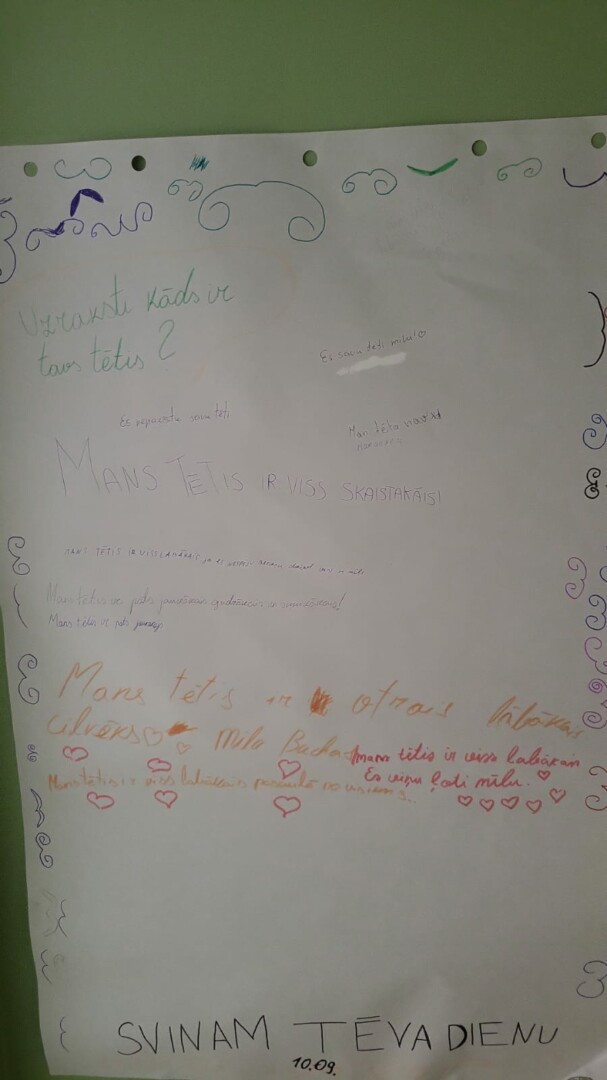 Uzraksti kāds ir
tavs tētis?
Es savu tēti mīlu!
Es nepazīstu savu tēti
Man tēta nav
MANS TĒTIS IR VISS SKAISTĀKĀIS!
MANS TĒTIS IR
Mans tētis ir pats gudrākais un
Mans tētis ir pats
Mans tētis ir otrais labākais
cilvēks
Mīlu
mans tētis ir viss labākais
Es viņu ļoti mīlu.
Mans tētis ir viss labākais pasaulē no visiem...
SVINAM TĒVA DIENU
10.09.